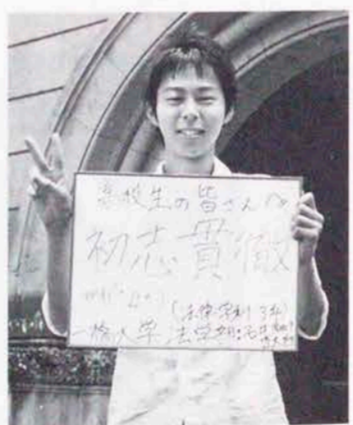 高校生の皆さんへ
初志貫徹
(法律学科 3年)
一橋大学 法学部